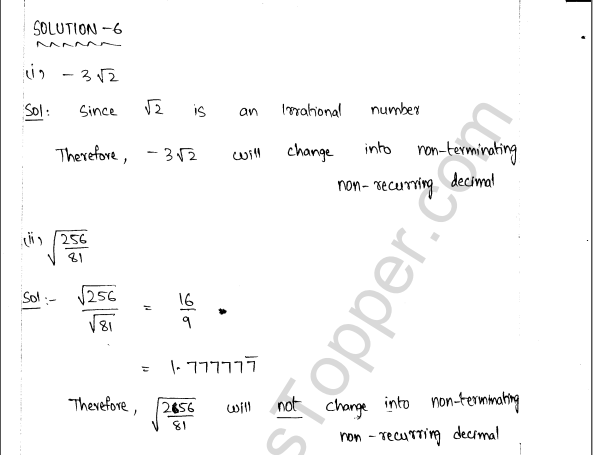 SOLUTION - 6
(i) - 3√2
Sol: Since √2 is an Irrational number
Therefore, - 3√2 will change into non-terminating
non- recurring decimal
(ii) √(256/81)
Sol :- √256/√81 = 16/9
= 1.777777̅
Therefore, √(256/81) will not change into non-terminating
non - recurring decimal
sTopper.com